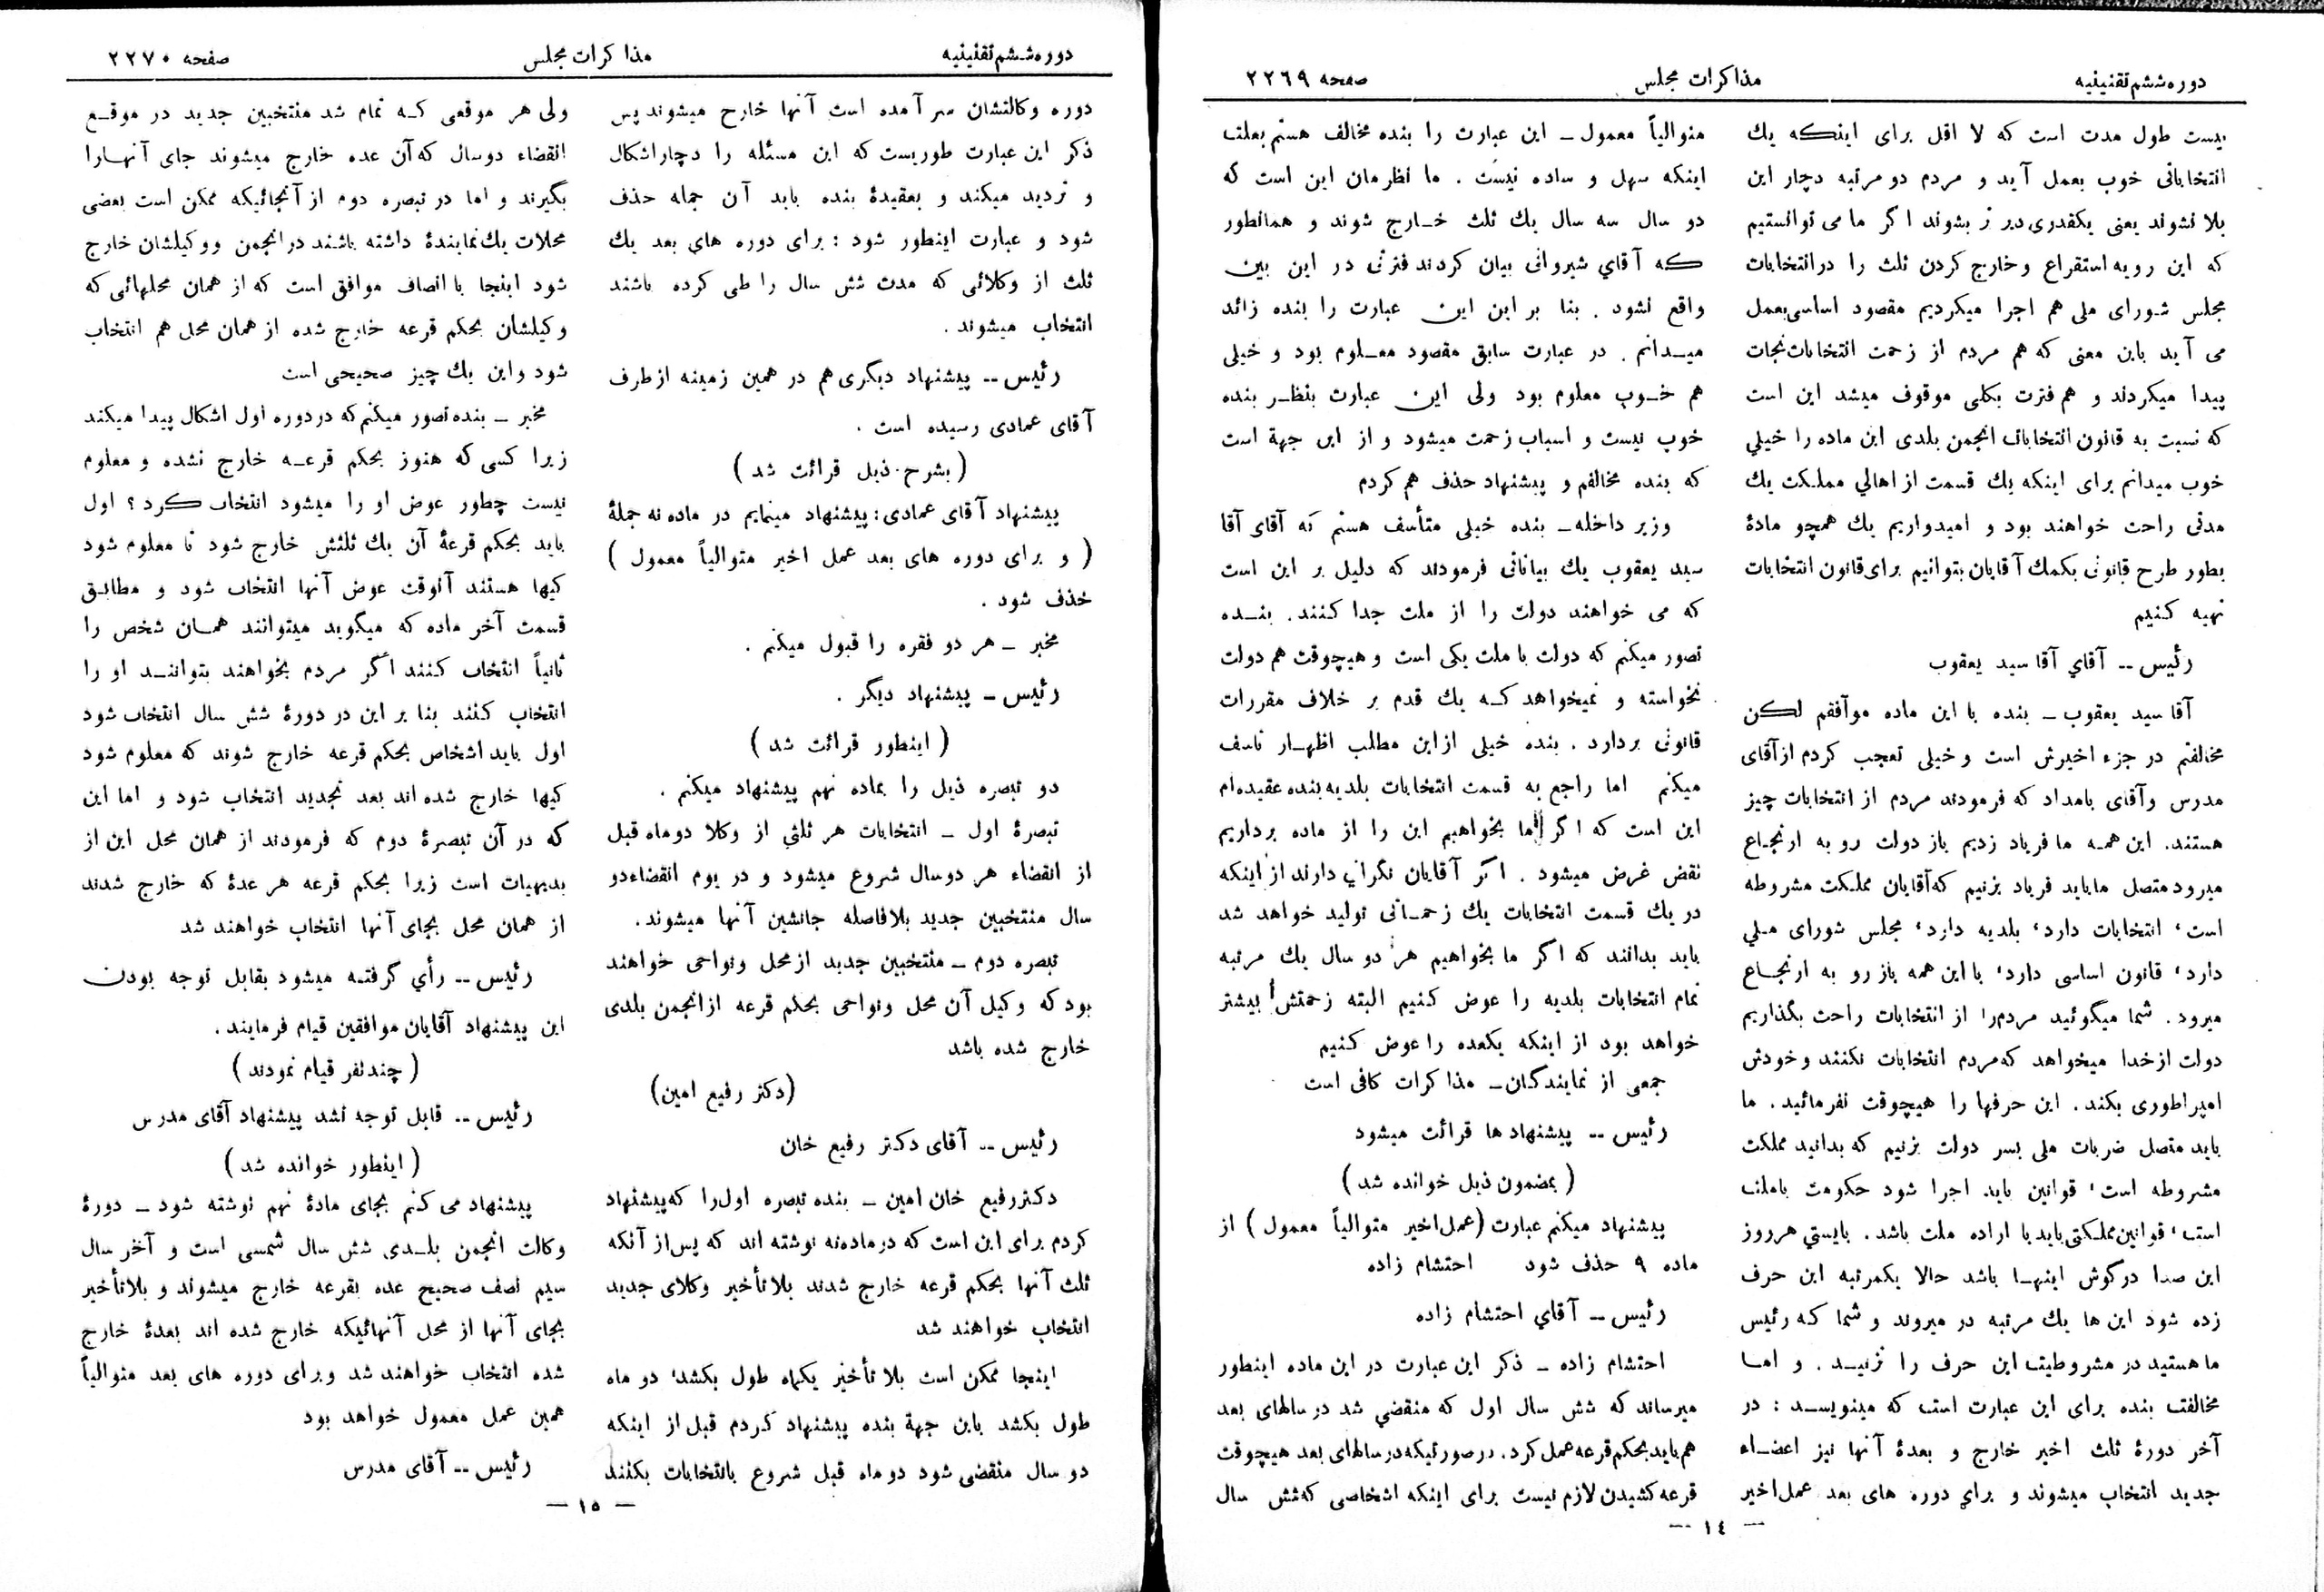 دوره ششم تقنینیه
مذاکرات مجلس
صفحه ۲۲٦۹
نیست طول مدت است که لا اقل برای اینکه یك
انتخاباتی خوب بعمل آید و مردم دو مرتبه دچار این
بلا نشوند یعنی یکقدری دیر تر بشوند اگر ما می توانستیم
که این رویه استقراع و خارج کردن ثلث را در انتخابات
مجلس شورای ملی هم اجرا میکردیم مقصود اساسی بعمل
می آید باین معنی که هم مردم از زحمت انتخابات نجات
پیدا میکردند و هم فترت بکلی موقوف میشد این است
که نسبت به قانون انتخابات انجمن بلدی این ماده را خیلي
خوب میدانم برای اینکه یك قسمت از اهالي مملکت یك
مدتی راحت خواهند بود و امیدواریم یك همچو مادهٔ
بطور طرح قانونی بکمك آقایان بتوانیم برای قانون انتخابات
تهیه کنیم
رئیس -- آقاي آقا سید یعقوب
آقا سید یعقوب ـ بنده با این ماده موآفقم لکن
مخالفتم در جزء اخیرش است و خیلی تعجب کردم از آقای
مدرس و آقای بامداد که فرمودند مردم از انتخابات چیز
هستند. این همه ما فریاد زدیم باز دولت رو به ارتجاع
میرود متصل ما باید فریاد بزنیم که آقایان مملکت مشروطه
است، انتخابات دارد، بلدیه دارد، مجلس شورای ملي
دارد، قانون اساسی دارد، با این همه باز رو به ارتجاع
میرود. شما میگوئید مردم را از انتخابات راحت بگذاریم
دولت از خدا میخواهد که مردم انتخابات نکنند و خودش
امپراطوری بکند. این حرفها را هیچوقت نفرمائید. ما
باید متصل ضربات ملی بسر دولت بزنیم که بدانید مملکت
مشروطه است، قوانین باید اجرا شود حکومت با ملت
است، قوانین مملکتی باید با اراده ملت باشد. بایستي هر روز
این صدا در گوش اینها باشد حالا یکمرتبه این حرف
زده شود این ها یك مرتبه در میروند و شما که رئیس
ما هستید در مشروطیت این حرف را نزنید. و اما
مخالفت بنده برای این عبارت است که مینویسد : در
آخر دورهٔ ثلث اخیر خارج و بعدهٔ آنها نیز اعضاء
جدید انتخاب میشوند و براي دوره های بعد عمل اخیر
متوالیاً معمول ـ این عبارت را بنده مخالف هستم بعلت
اینکه سهل و ساده نیست. ما نظرمان این است که
دو سال سه سال یك ثلث خارج شوند و همانطور
که آقاي شیروانی بیان کردند فترتی در این بین
واقع نشود. بنا بر این این عبارت را بنده زائد
میدانم. در عبارت سابق مقصود معلوم بود و خیلی
هم خوب معلوم بود ولی این عبارت بنظر بنده
خوب نیست و اسباب زحمت میشود و از این جهة است
که بنده مخالفم و پیشنهاد حذف هم کردم
وزیر داخله ـ بنده خیلی متأسف هستم که آقای آقا
سید یعقوب یك بیاناتی فرمودند که دلیل بر این است
که می خواهند دولت را از ملت جدا کنند. بنده
تصور میکنم که دولت با ملت یکی است و هیچوقت هم دولت
نخواسته و نمیخواهد که یك قدم بر خلاف مقررات
قانونی بردارد. بنده خیلی از این مطلب اظهار تاسف
میکنم اما راجع به قسمت انتخابات بلدیه بنده عقیده ام
این است که اگر ما بخواهیم این را از ماده برداریم
نقض غرض میشود. اگر آقایان نگراني دارند از اینکه
در یك قسمت انتخابات یك زحماتی تولید خواهد شد
باید بدانند که اگر ما بخواهیم هر دو سال یك مرتبه
تمام انتخابات بلدیه را عوض کنیم البته زحمتش بیشتر
خواهد بود از اینکه یکعده را عوض کنیم
جمعی از نمایندگان ـ مذاکرات کافی است
رئیس -- پیشنهاد ها قرائت میشود
( بمضمون ذیل خوانده شد )
پیشنهاد میکنم عبارت (عمل اخیر متوالیاً معمول) از
ماده ۹ حذف شود احتشام زاده
رئیس -- آقاي احتشام زاده
احتشام زاده ـ ذکر این عبارت در این ماده اینطور
میرساند که شش سال اول که منقضي شد در سالهای بعد
هم باید بحکم قرعه عمل کرد. در صورتیکه در سالهای بعد هیچوقت
قرعه کشیدن لازم نیست برای اینکه اشخاصی که شش سال
— ۱٤ —
دوره ششم تقنینیه
مذاکرات مجلس
صفحه ۲۲۷۰
دوره وکالتشان سر آمده است آنها خارج میشوند پس
ذکر این عبارت طوریست که این مسئله را دچار اشکال
و تردید میکند و بعقیدهٔ بنده باید آن جمله حذف
شود و عبارت اینطور شود : برای دوره های بعد یك
ثلث از وکلائی که مدت شش سال را طی کرده باشند
انتخاب میشوند.
رئیس -- پیشنهاد دیگری هم در همین زمینه از طرف
آقای عمادی رسیده است.
( بشرح ذیل قرائت شد )
پیشنهاد آقای عمادی : پیشنهاد مینمایم در ماده نه جملهٔ
( و برای دوره های بعد عمل اخیر متوالیاً معمول )
حذف شود.
مخبر ـ هر دو فقره را قبول میکنم.
رئیس ـ پیشنهاد دیگر.
( اینطور قرائت شد )
دو تبصره ذیل را بماده نهم پیشنهاد میکنم.
تبصرهٔ اول ـ انتخابات هر ثلثي از وکلا دو ماه قبل
از انقضاء هر دو سال شروع میشود و در یوم انقضاء دو
سال منتخبین جدید بلافاصله جانشین آنها میشوند.
تبصره دوم ـ منتخبین جدید از محل و نواحی خواهند
بود که وکیل آن محل و نواحی بحکم قرعه از انجمن بلدی
خارج شده باشد
(دکتر رفیع امین)
رئیس -- آقای دکتر رفیع خان
دکتر رفیع خان امین ـ بنده تبصره اول را که پیشنهاد
کردم برای این است که در ماده نه نوشته اند که پس از آنکه
ثلث آنها بحکم قرعه خارج شدند بلا تأخیر وکلای جدید
انتخاب خواهند شد
اینجا ممکن است بلا تأخیر یکماه طول بکشد، دو ماه
طول بکشد باین جهة بنده پیشنهاد کردم قبل از اینکه
دو سال منقضی شود دو ماه قبل شروع بانتخابات بکنند
ولی هر موقعی که تمام شد منتخبین جدید در موقع
انقضاء دو سال که آن عده خارج میشوند جای آنها را
بگیرند و اما در تبصره دوم از آنجائیکه ممکن است بعضی
محلات یك نمایندهٔ داشته باشند در انجمن و وکیلشان خارج
شود اینجا با انصاف موافق است که از همان محلهائی که
وکیلشان بحکم قرعه خارج شده از همان محل هم انتخاب
شود و این یك چیز صحیحی است
مخبر ـ بنده تصور میکنم که در دوره اول اشکال پیدا میکند
زیرا کسی که هنوز بحکم قرعه خارج نشده و معلوم
نیست چطور عوض او را میشود انتخاب کرد؟ اول
باید بحکم قرعهٔ آن یك ثلثش خارج شود تا معلوم شود
کیها هستند آنوقت عوض آنها انتخاب شود و مطابق
قسمت آخر ماده که میگوید میتوانند همان شخص را
ثانیاً انتخاب کنند اگر مردم بخواهند بتوانند او را
انتخاب کنند بنا بر این در دورهٔ شش سال انتخاب شود
اول باید اشخاص بحکم قرعه خارج شوند که معلوم شود
کیها خارج شده اند بعد تجدید انتخاب شود و اما این
که در آن تبصرهٔ دوم که فرمودند از همان محل این از
بدیهیات است زیرا بحکم قرعه هر عدهٔ که خارج شدند
از همان محل بجای آنها انتخاب خواهند شد
رئیس -- رأي گرفته میشود بقابل توجه بودن
این پیشنهاد آقایان موافقین قیام فرمایند.
( چند نفر قیام نمودند )
رئیس -- قابل توجه نشد پیشنهاد آقای مدرس
( اینطور خوانده شد )
پیشنهاد می کنم بجای مادهٔ نهم نوشته شود ـ دورهٔ
وکالت انجمن بلدی شش سال شمسی است و آخر سال
سیم نصف صحیح عده بقرعه خارج میشوند و بلاتأخیر
بجای آنها از محل آنهائیکه خارج شده اند بعدهٔ خارج
شده انتخاب خواهند شد و برای دوره های بعد متوالیاً
همین عمل معمول خواهد بود
رئیس -- آقای مدرس
— ۱۵ —